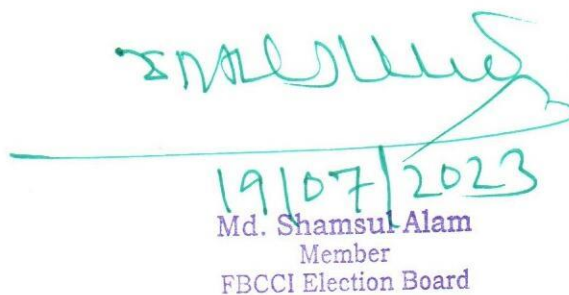 19/07/2023
Md. Shamsul Alam
Member
FBCCI Election Board